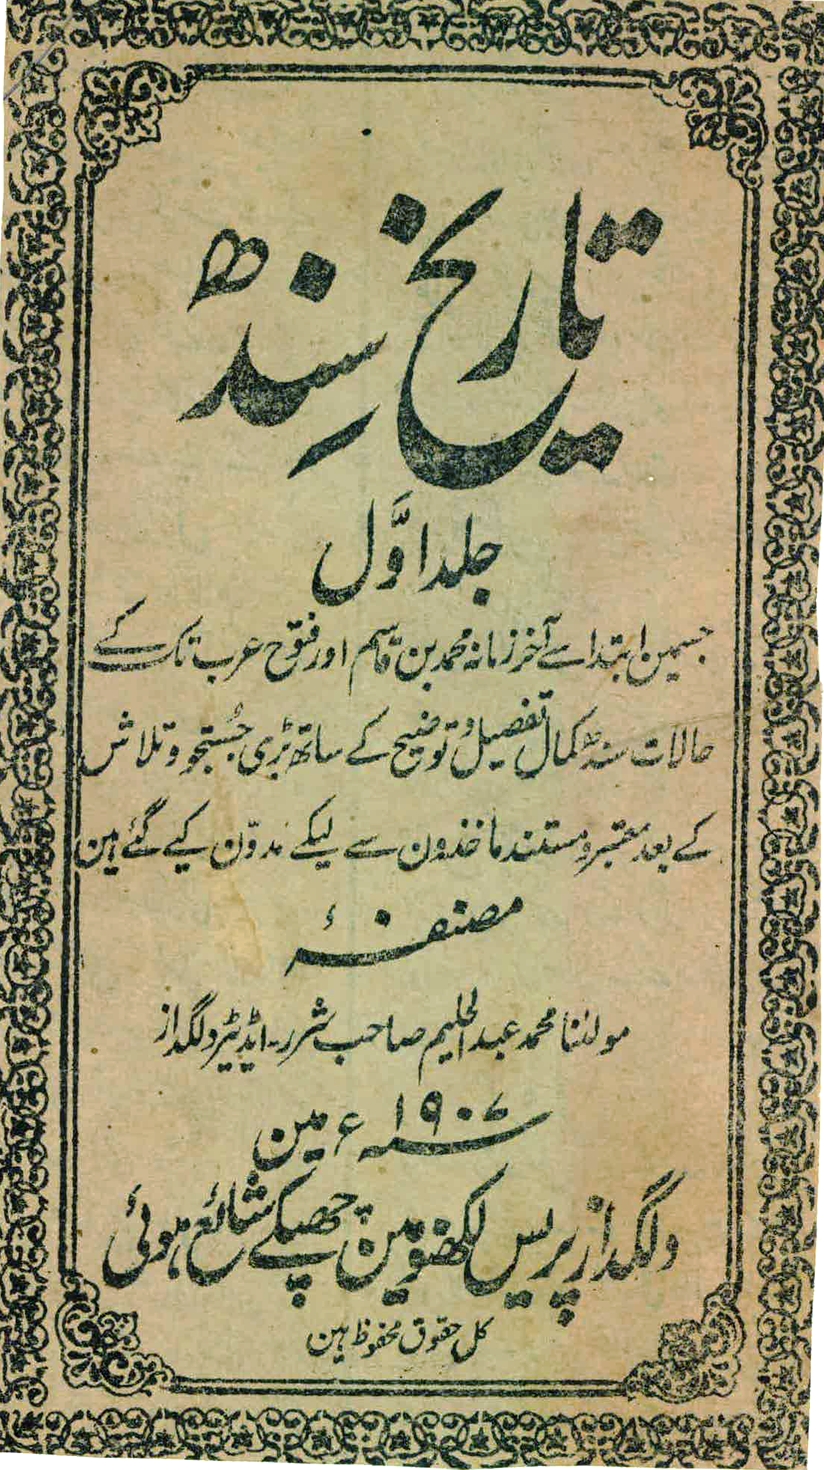 تاریخ سِندھ
جلد اوَّل
جسمین ابتدا سے آخر زمانہ محمد بن قاسم اور فتوح عرب تک کے
حالات سندھ کمال تفصیل و توضیح کے ساتھ بڑی جُستجو و تلاش
کے بعد معتبر و مستند ماخذون سے لیکے مدوّن کیے گئے ہین
مصنفۂ
مولٰنا محمد عبدالحلیم صاحب شرر۔ ایڈیٹر دلگداز
سنہ ۱۹۰۷ء مین
دلگداز پریس لکھنؤ مین چھپکے شائع ہوئی
کل حقوق محفوظ ہین